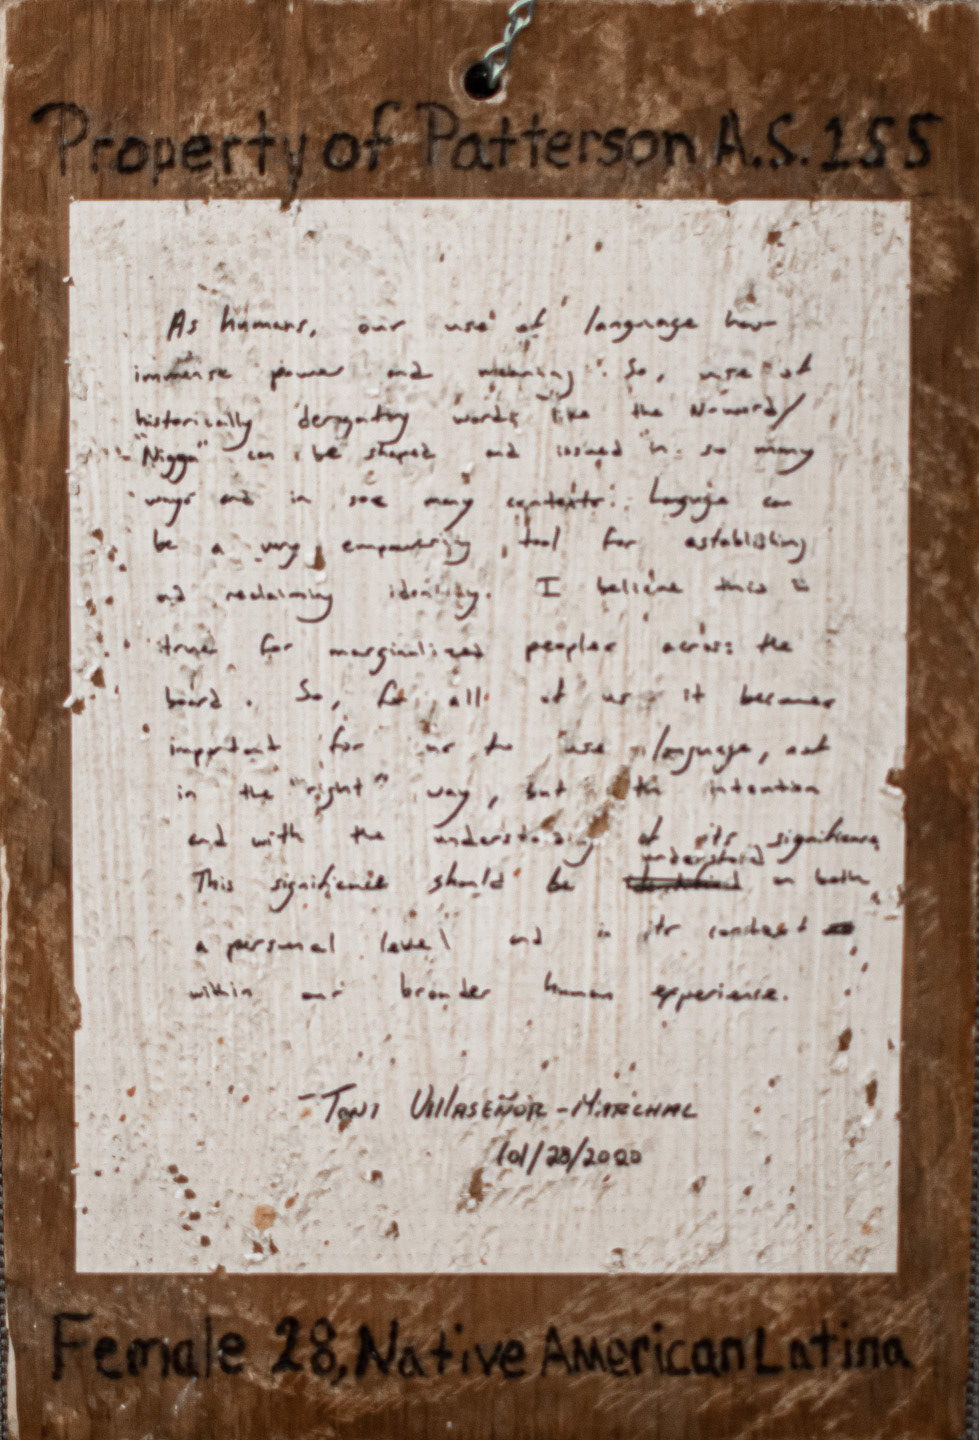 Property of Patterson A.S. 155
As humans, our use of language has
immense power and meaning. So, use of
historically derogatory words like the N-word/
"Nigga" can be shaped and in so many
ways and in many contexts. Language can
be a very empowering tool for establishing
and reclaiming identity. I believe this is
true for marginalized peoples across the
board. So, for all of us it becomes
important for us to use language, not
in the "right" way, but with intention
and with the understanding of its significance
This significance should be understood on both
a personal level and in its context
within our broader human experience.
- Toni Villaseñor-Marchal
101/28/2020
Female 28, Native American Latina